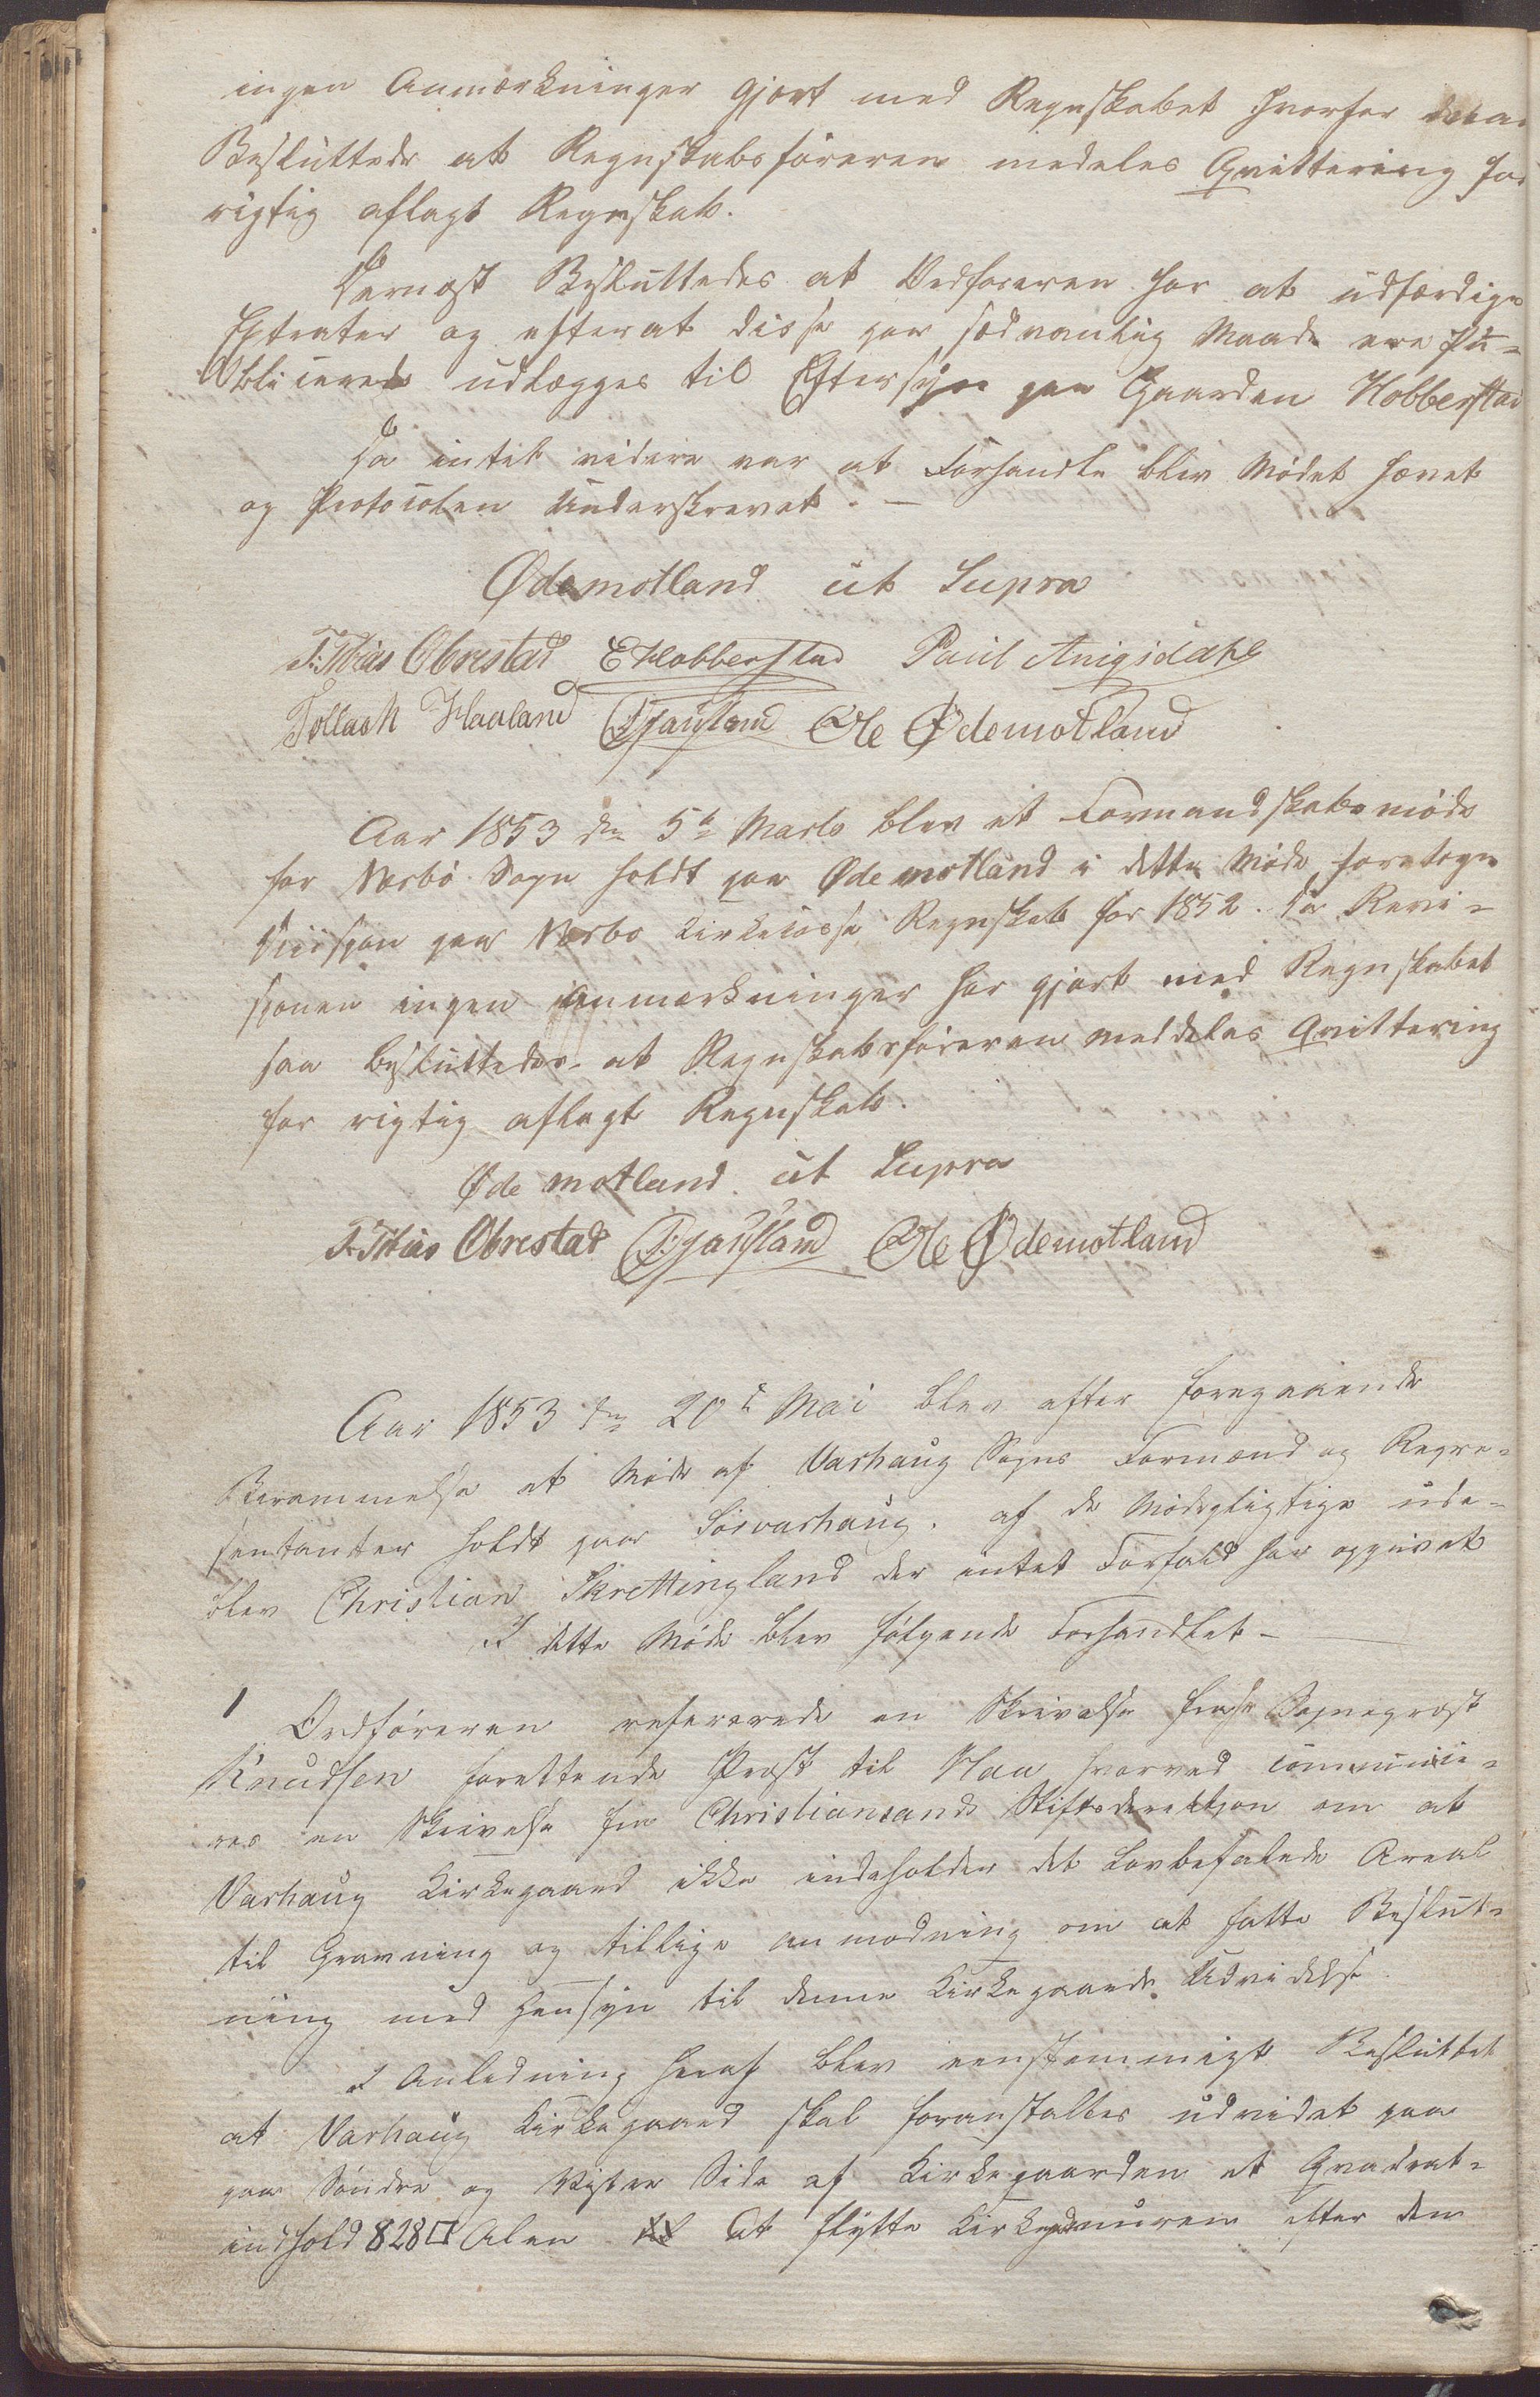 ingen Anmærkninger gjort med Regnskabet hvorfor
Besluttede at Regnskabsføreren medeles Qvittering for
rigtig aflagt Regnskab.
Dernæst Besluttedes at Ordføreren har at udfærdige
Extrater og efterat disse paa sedvanlig Maade ere Pu-
blicerede udlægges til Eftersyn paa Gaarden Hobberstad
Da intet videre var at Forhandle blev Mødet hævet
og Protocolen Underskrevet. —
Ødemotland ut Supra
T. Tobias Obrestad E Hobberstad Paul Aniqsdahl
Tollach Haaland Ole Ødemotland
Aar 1853 den 5te Marts blev et Formandskabsmøde
for Nærbø Sogn holdt paa Ødemotland i dette Møde foretoges
paa Nærbø Kirkecasse Regnskab for 1852. Da Revi-
sjonen ingen Anmærkninger har gjort med Regnskabet
saa besluttedes at Regnskabsføreren meddeles Qvittering
for rigtig aflagt Regnskab.
Øde motland ut Supra
T. Tobias Obrestad Ole Ødemotland
Aar 1853 den 20de Mai blev efter foregaaende
Berammelse et Møde af Varhaug Sogns Formænd og Repre-
sentanter holdt paa Sörvarhaug. af de Mødepligtige ude-
blev Christian Skrettingland der intet Forfald har opgivet
I dette Møde blev følgende Forhandlet —
1 Ordføreren refererede en Skrivelse fra Hr Sogneprest
Knudsen forettende Prest til Haa hvorved communice-
res en Skrivelse fra Christiansands Stiftsdirektion om at
Varhaug Kirkegaard ikke indeholder det Lovbefalede Areal
til Gravning og tillige anmodning om at fatte Beslut-
ning med Hensyn til denne Kirkegaards Udvidelse
I Anledning heraf blev eenstemmigt Besluttet
at Varhaug Kirkegaard skal foranstaltes udvidet paa
paa Søndre og Vestre Side af Kirkegaarden et Qvadrat-
indhold 828 □ Alen at flytte Kirkegaardmuren efter den